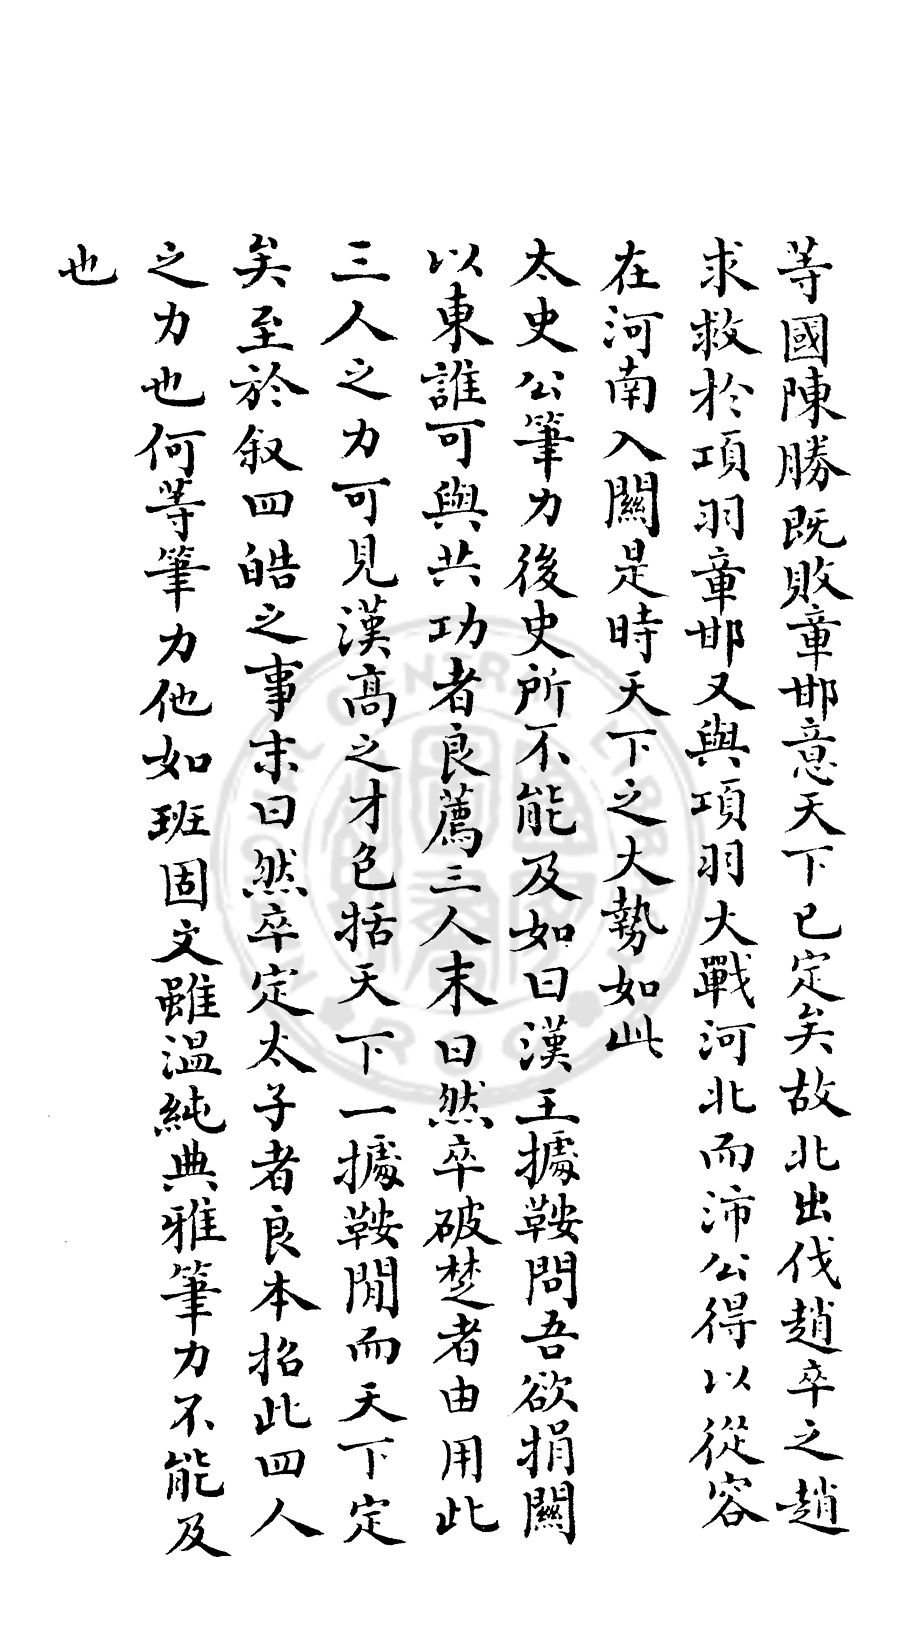 等國陳勝既敗章邯意天下已定矣故北出伐趙卒之趙
求救於項羽章邯又與項羽大戰河北而沛公得以從容
在河南入關是時天下之大勢如此
太史公筆力後史所不能及如曰漢王據鞍問吾欲捐關
以東誰可與共功者良薦三人末曰然卒破楚者由用此
三人之力可見漢高之才包括天下一據鞍閒而天下定
矣至於叙四皓之事末曰然卒定太子者良本招此四人
之力也何等筆力他如班固文雖温純典雅筆力不能及
也